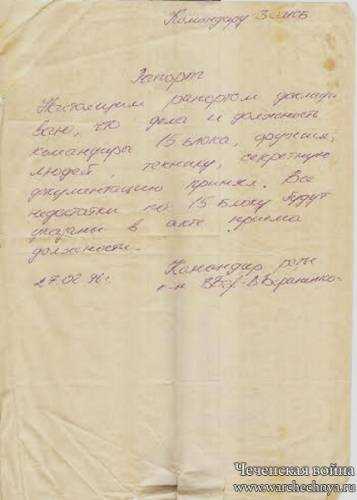 Командиру 3
Рапорт
Настоящим рапортом доклады
ваю, что дела и должность
командира 15 блока, оружия,
людей, технику, секретную
документацию принял. Все
недостатки по 15 блоку будут
указаны в акте приема
должности.
Командир роты
27.02.96г.
Чеченская война
www.warchechnya.ru